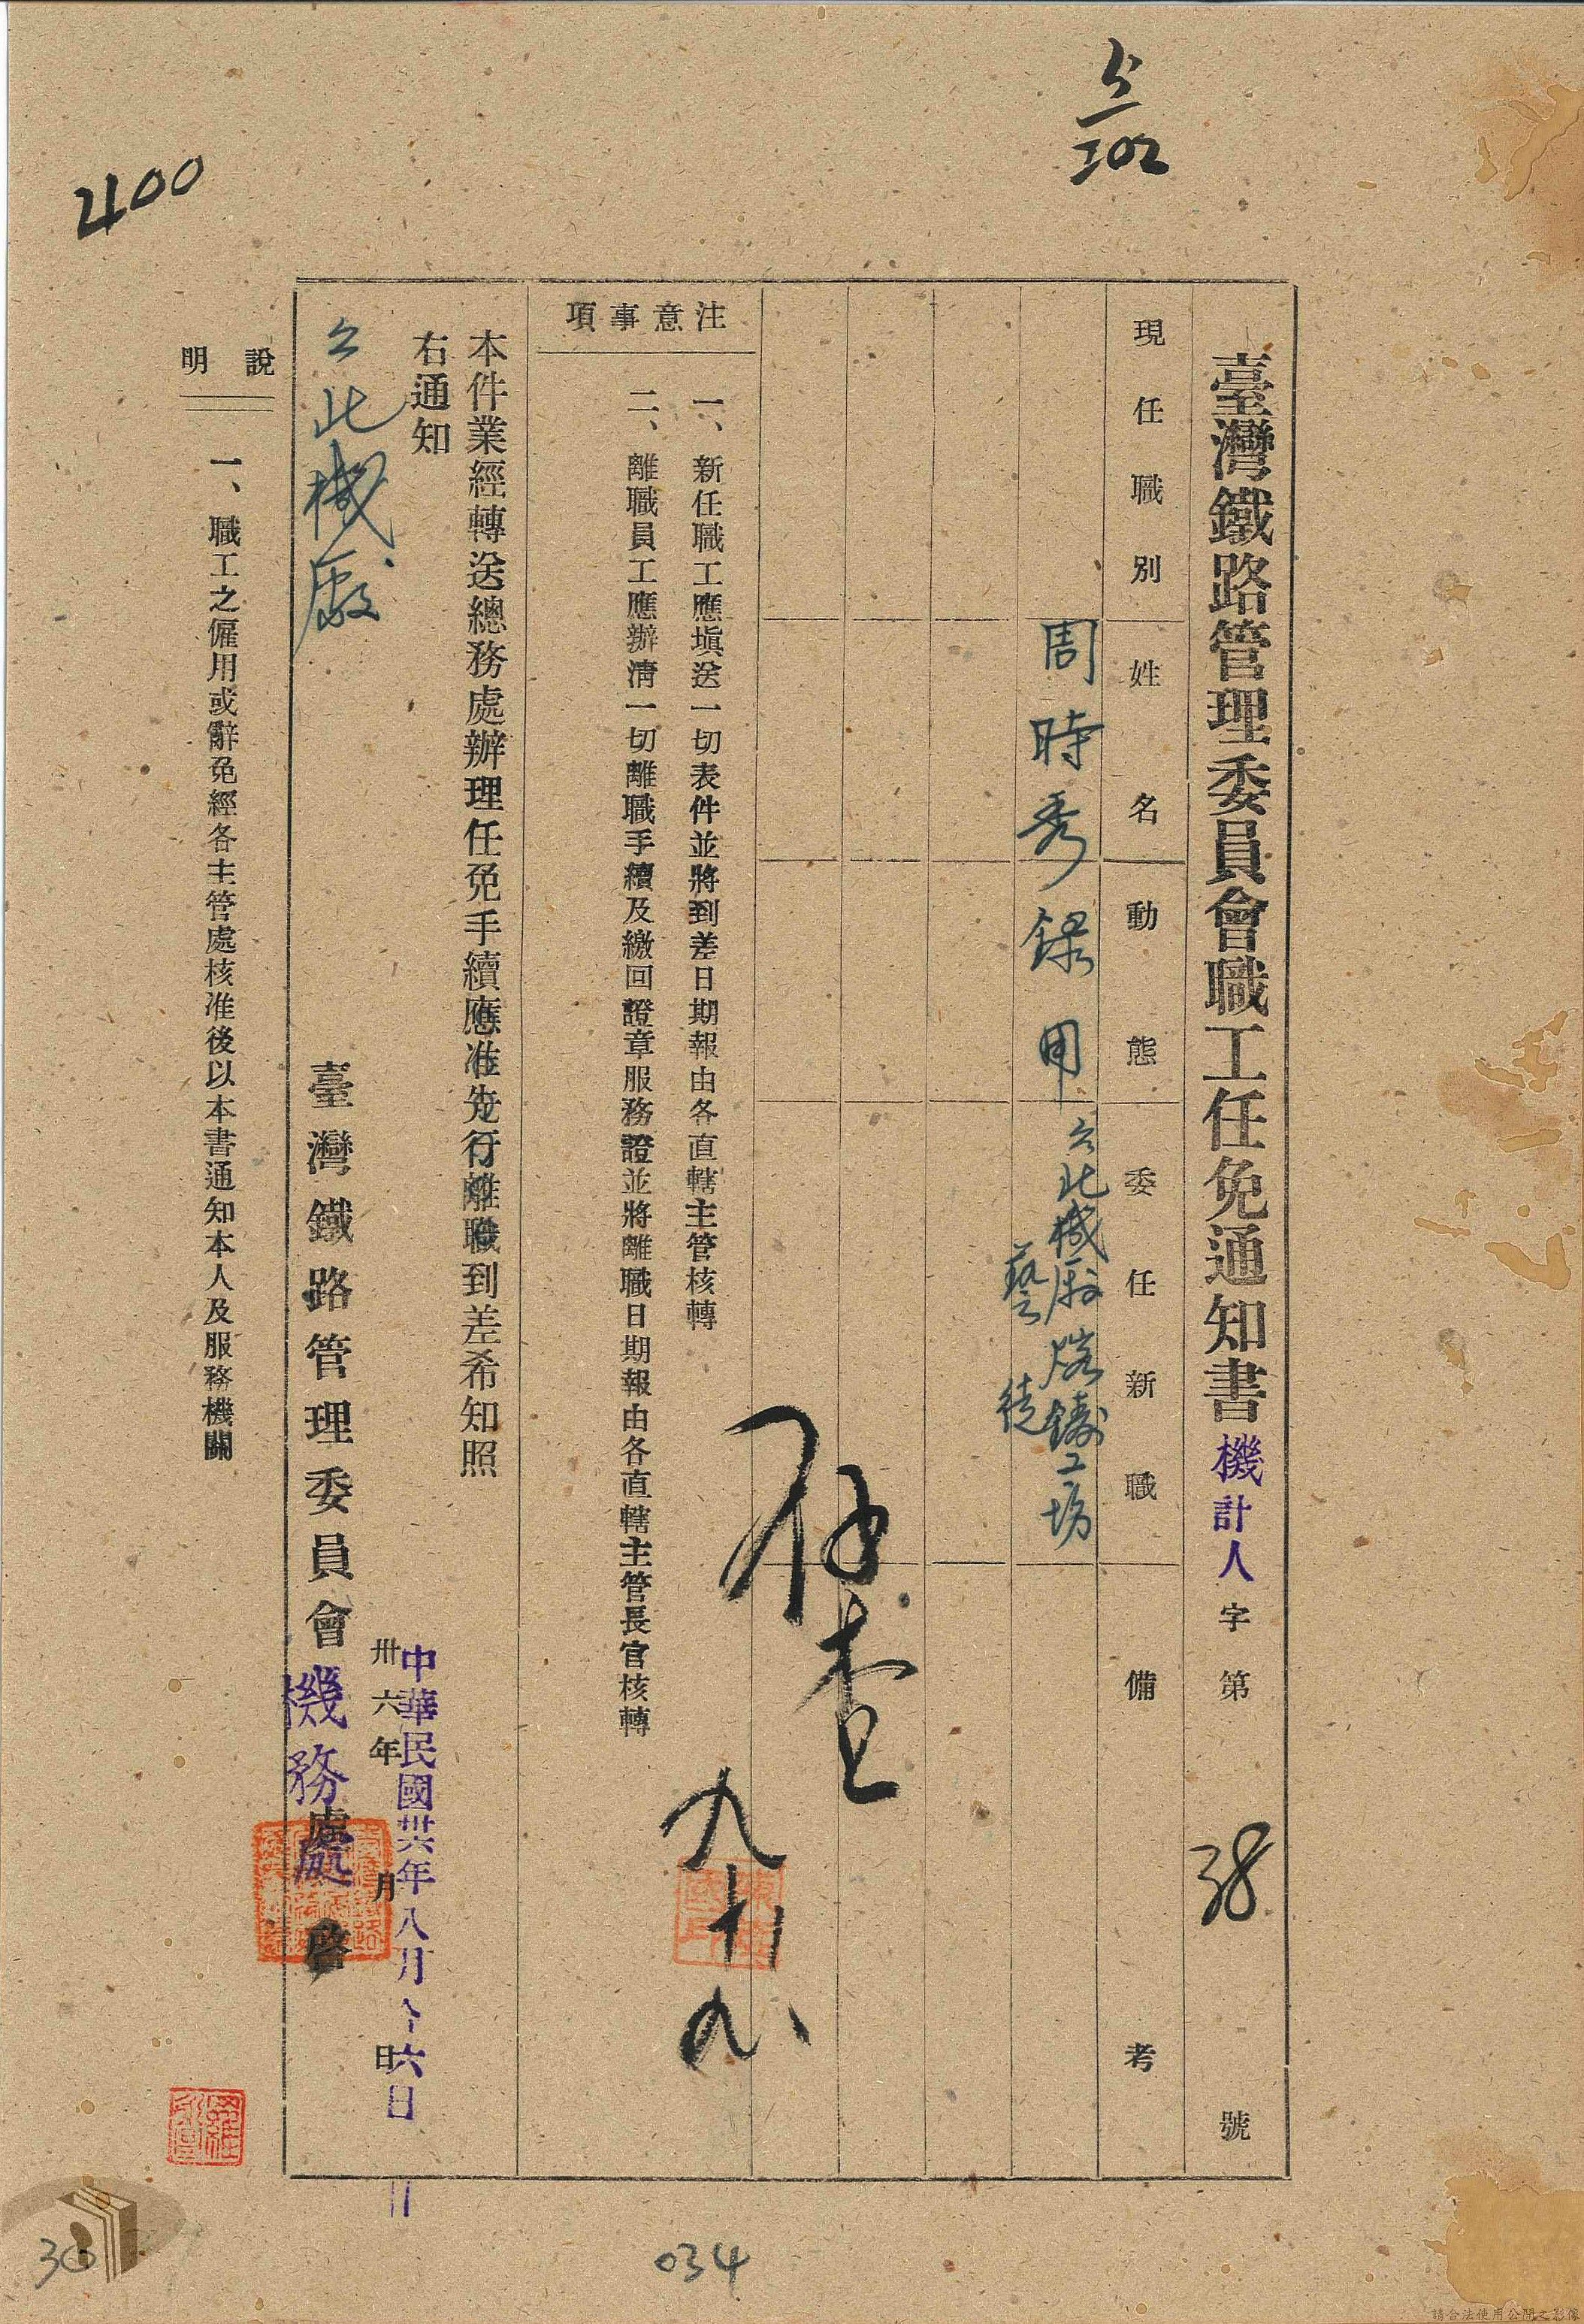 臺灣鐵路管理委員會職工任免通知書機計人字第38號
現任職別
姓名
動態
委任新職
備考
周時秀
錄用
台北機廠熔鑄工場
藝徒
注意事項
一、新任職工應填送一切表件並將到差日期報由各直轄主管核轉
二、離職員工應辦清一切離職手續及繳回證章服務證並將離職日期報由各直轄主管長官核轉
本件業經轉送總務處辦理任免手續應准先行離職到差希知照
右通知
台北機廠
卅六年月日
中華民國卅六年八月廿六日
臺灣鐵路管理委員會機務處啓
說明
一、職工之僱用或辭免經各主管處核准後以本書通知本人及服務機關
400
034
36
請合法使用公開之影像